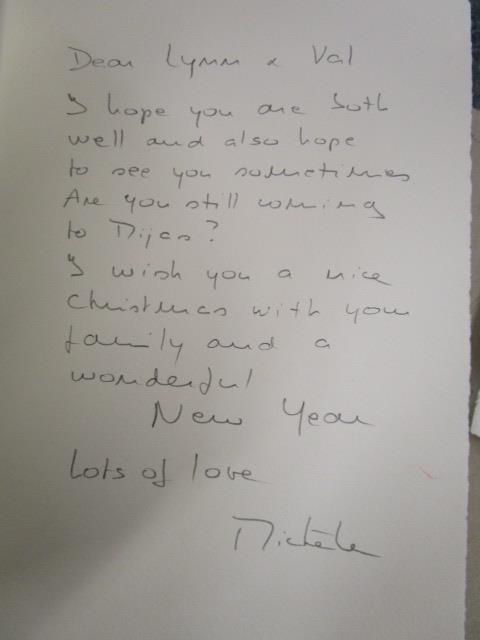 Dear Lynn & Val
I hope you are both
well and also hope
to see you sometimes
Are you still coming
to Mijas?
I wish you a nice
Christmas with your
family and a
wonderful
New Year
Lots of love
Michèle